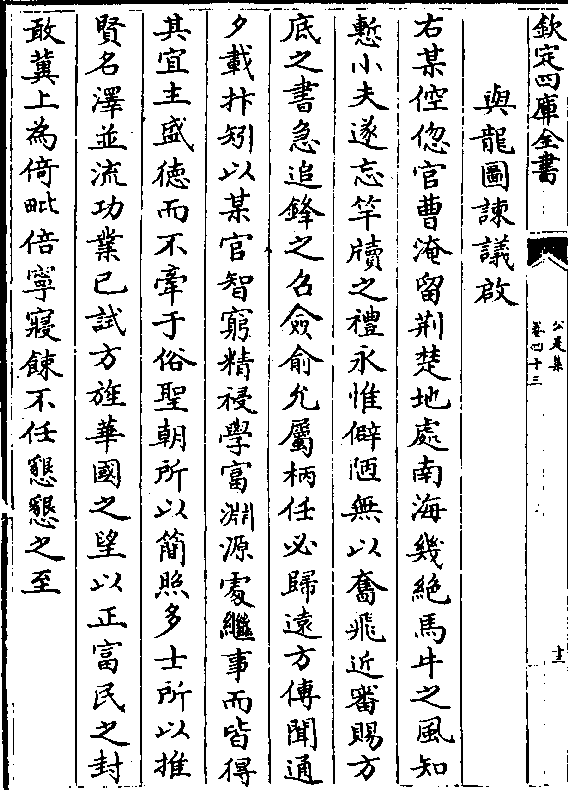 欽定四庫全書
公是集
卷四十三
十三
與龍圖諫議啟
右某倥偬官曹淹留荆楚地處南海幾絶馬牛之風知
慙小夫遂忘竿牘之禮永惟僻陋無以奮飛近審賜方
底之書急追鋒之召僉俞允屬柄任必歸遠方傳聞通
夕載抃矧以某官智窮精祲學富淵源處繼事而皆得
其宜主盛徳而不牽于俗聖朝所以簡照多士所以推
賢名澤並流功業已試方旌華國之望以正富民之封
敢冀上為倚毗倍寧寢餗不任懇懇之至